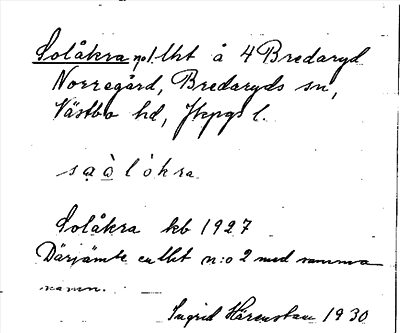 Solåkra no 1. lht å 4 Bredaryd
Norregård, Bredaryds sn,
Västbo hd, Jkpgs l.
Solåkra kb 1927
Därjämte en lht n:o 2 med samma
namn.
Ingrid 1930